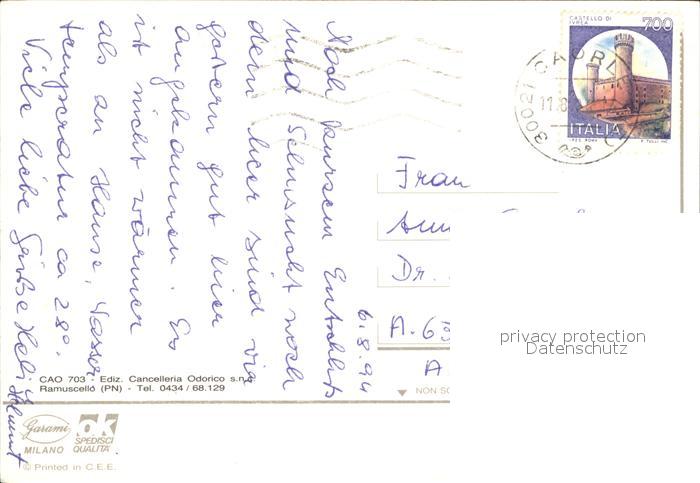 Nach kurzem Entschluß
und Sehnsucht nach
dem Meer sind wir
gestern gut hier
angekommen. Es
ist nicht wärmer
als zu Hause, Wasser
temperatur ca 28°.
Viele liebe Grüße
Helmut
6.8.94
CASTELLO DI
IVREA
700
ITALIA
I.P.Z.S. ROMA
30021 CAORLE
11.8
Frau
Dr.
A.
privacy protection
Datenschutz
CAO 703 - Ediz. Cancelleria Odorico s.n.c.
Ramuscello (PN) - Tel. 0434 / 68.129
NON SC
Garami
MILANO
ok
SPEDISCI
QUALITÀ
© Printed in C.E.E.